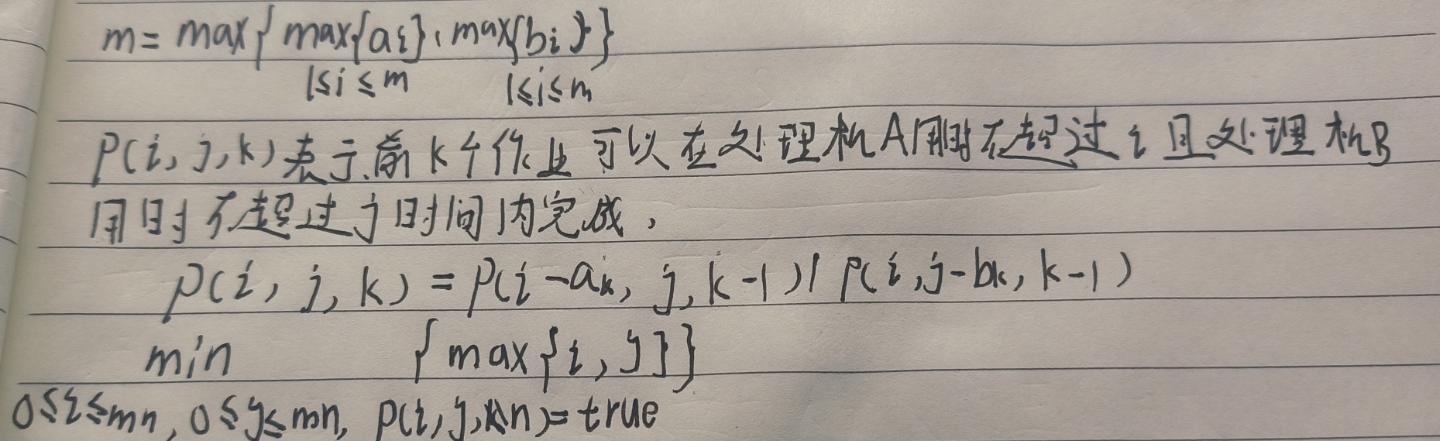 m = max{ max{ai}, max{bi} }
1≤i≤m 1≤i≤m
P(i, j, k) 表示前k个作业可以在处理机A用时不超过i且处理机B
用时不超过j时间内完成,
P(i, j, k) = P(i-ak, j, k-1) | P(i, j-bk, k-1)
min {max{i, j}}
0≤i≤mn, 0≤j≤mn, P(i, j, n) = true